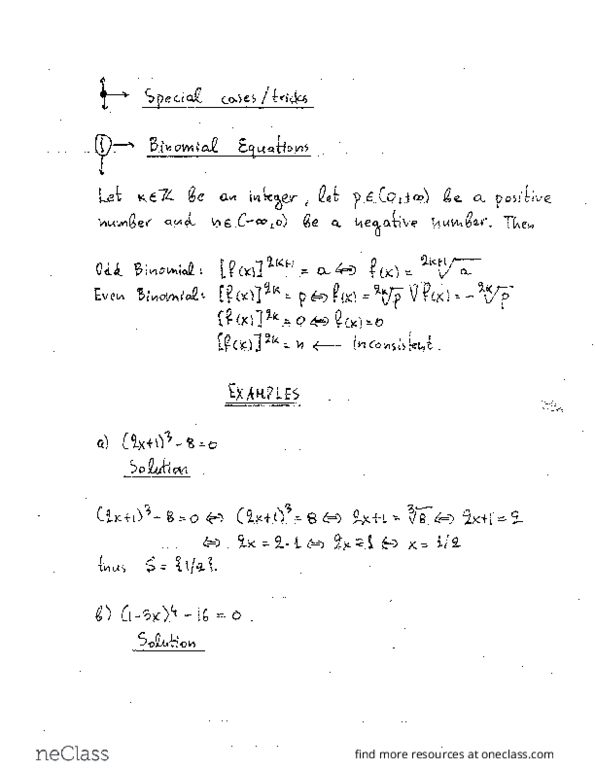 Special cases/tricks
① → Binomial Equations
Let κ∈ℤ be an integer, let p∈(0,+∞) be a positive
number and n∈(-∞,0) be a negative number. Then
Odd Binomial: [f(x)]^{2κ+1} = a ⇔ f(x) = ^{2κ+1}√a
Even Binomial: [f(x)]^{2κ} = p ⇔ f(x) = ^{2κ}√p ∨ f(x) = -^{2κ}√p
[f(x)]^{2κ} = 0 ⇔ f(x) = 0
[f(x)]^{2κ} = n ← Inconsistent.
EXAMPLES
a) (2x+1)^3 - 8 = 0
Solution
(2x+1)^3 - 8 = 0 ⇔ (2x+1)^3 = 8 ⇔ 2x+1 = ∛8 ⇔ 2x+1 = 2
⇔ 2x = 2-1 ⇔ 2x = 1 ⇔ x = 1/2
thus S = {1/2}.
b) (1-3x)^4 - 16 = 0.
Solution
neClass
find more resources at oneclass.com